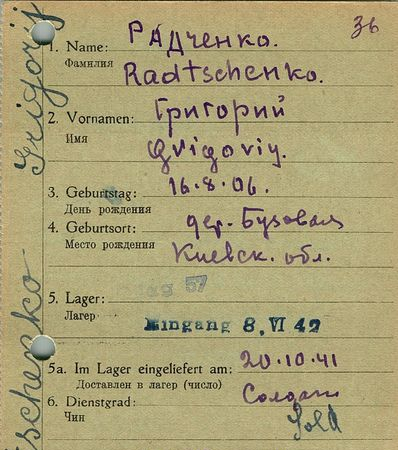 36
1. Name: Радченко.
Фамилия Radtschenko.
2. Vornamen: Григорий
Имя Grigoriy.
3. Geburtstag: 16.8.06.
День рождения
4. Geburtsort: дер. Бузовая
Место рождения Киевск. обл.
5. Lager: 57
Лагер
Eingang 8. VI 42
5a. Im Lager eingeliefert am: 20.10.41
Доставлен в лагер (число)
6. Dienstgrad: Солдат
Чин Sold
schenko Grigorij